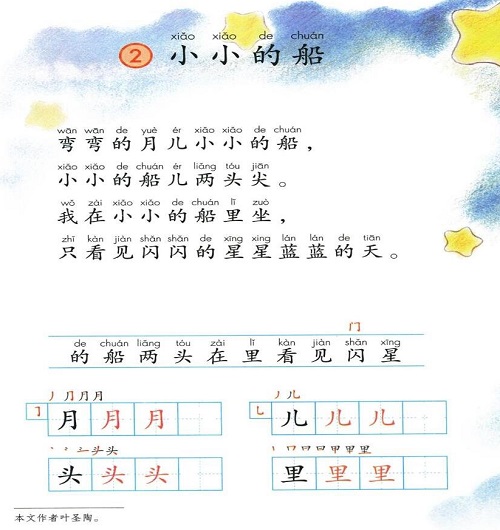 xiǎo xiǎo de chuán
2 小小的船
wān wān de yuè ér xiǎo xiǎo de chuán
弯弯的月儿小小的船，
xiǎo xiǎo de chuán ér liǎng tóu jiān
小小的船儿两头尖。
wǒ zài xiǎo xiǎo de chuán lǐ zuò
我在小小的船里坐，
zhǐ kàn jiàn shǎn shǎn de xīng xing lán lán de tiān
只看见闪闪的星星蓝蓝的天。
门
de chuán liǎng tóu zài lǐ kàn jiàn shǎn xīng
的船两头在里看见闪星
丿 ⺆ 月 月
㇆ 月 月 月
丿 儿
乚 儿 儿 儿
头 头
头 头 头
丨 口 曰 日 甲 甲 里
里 里 里
本文作者叶圣陶。